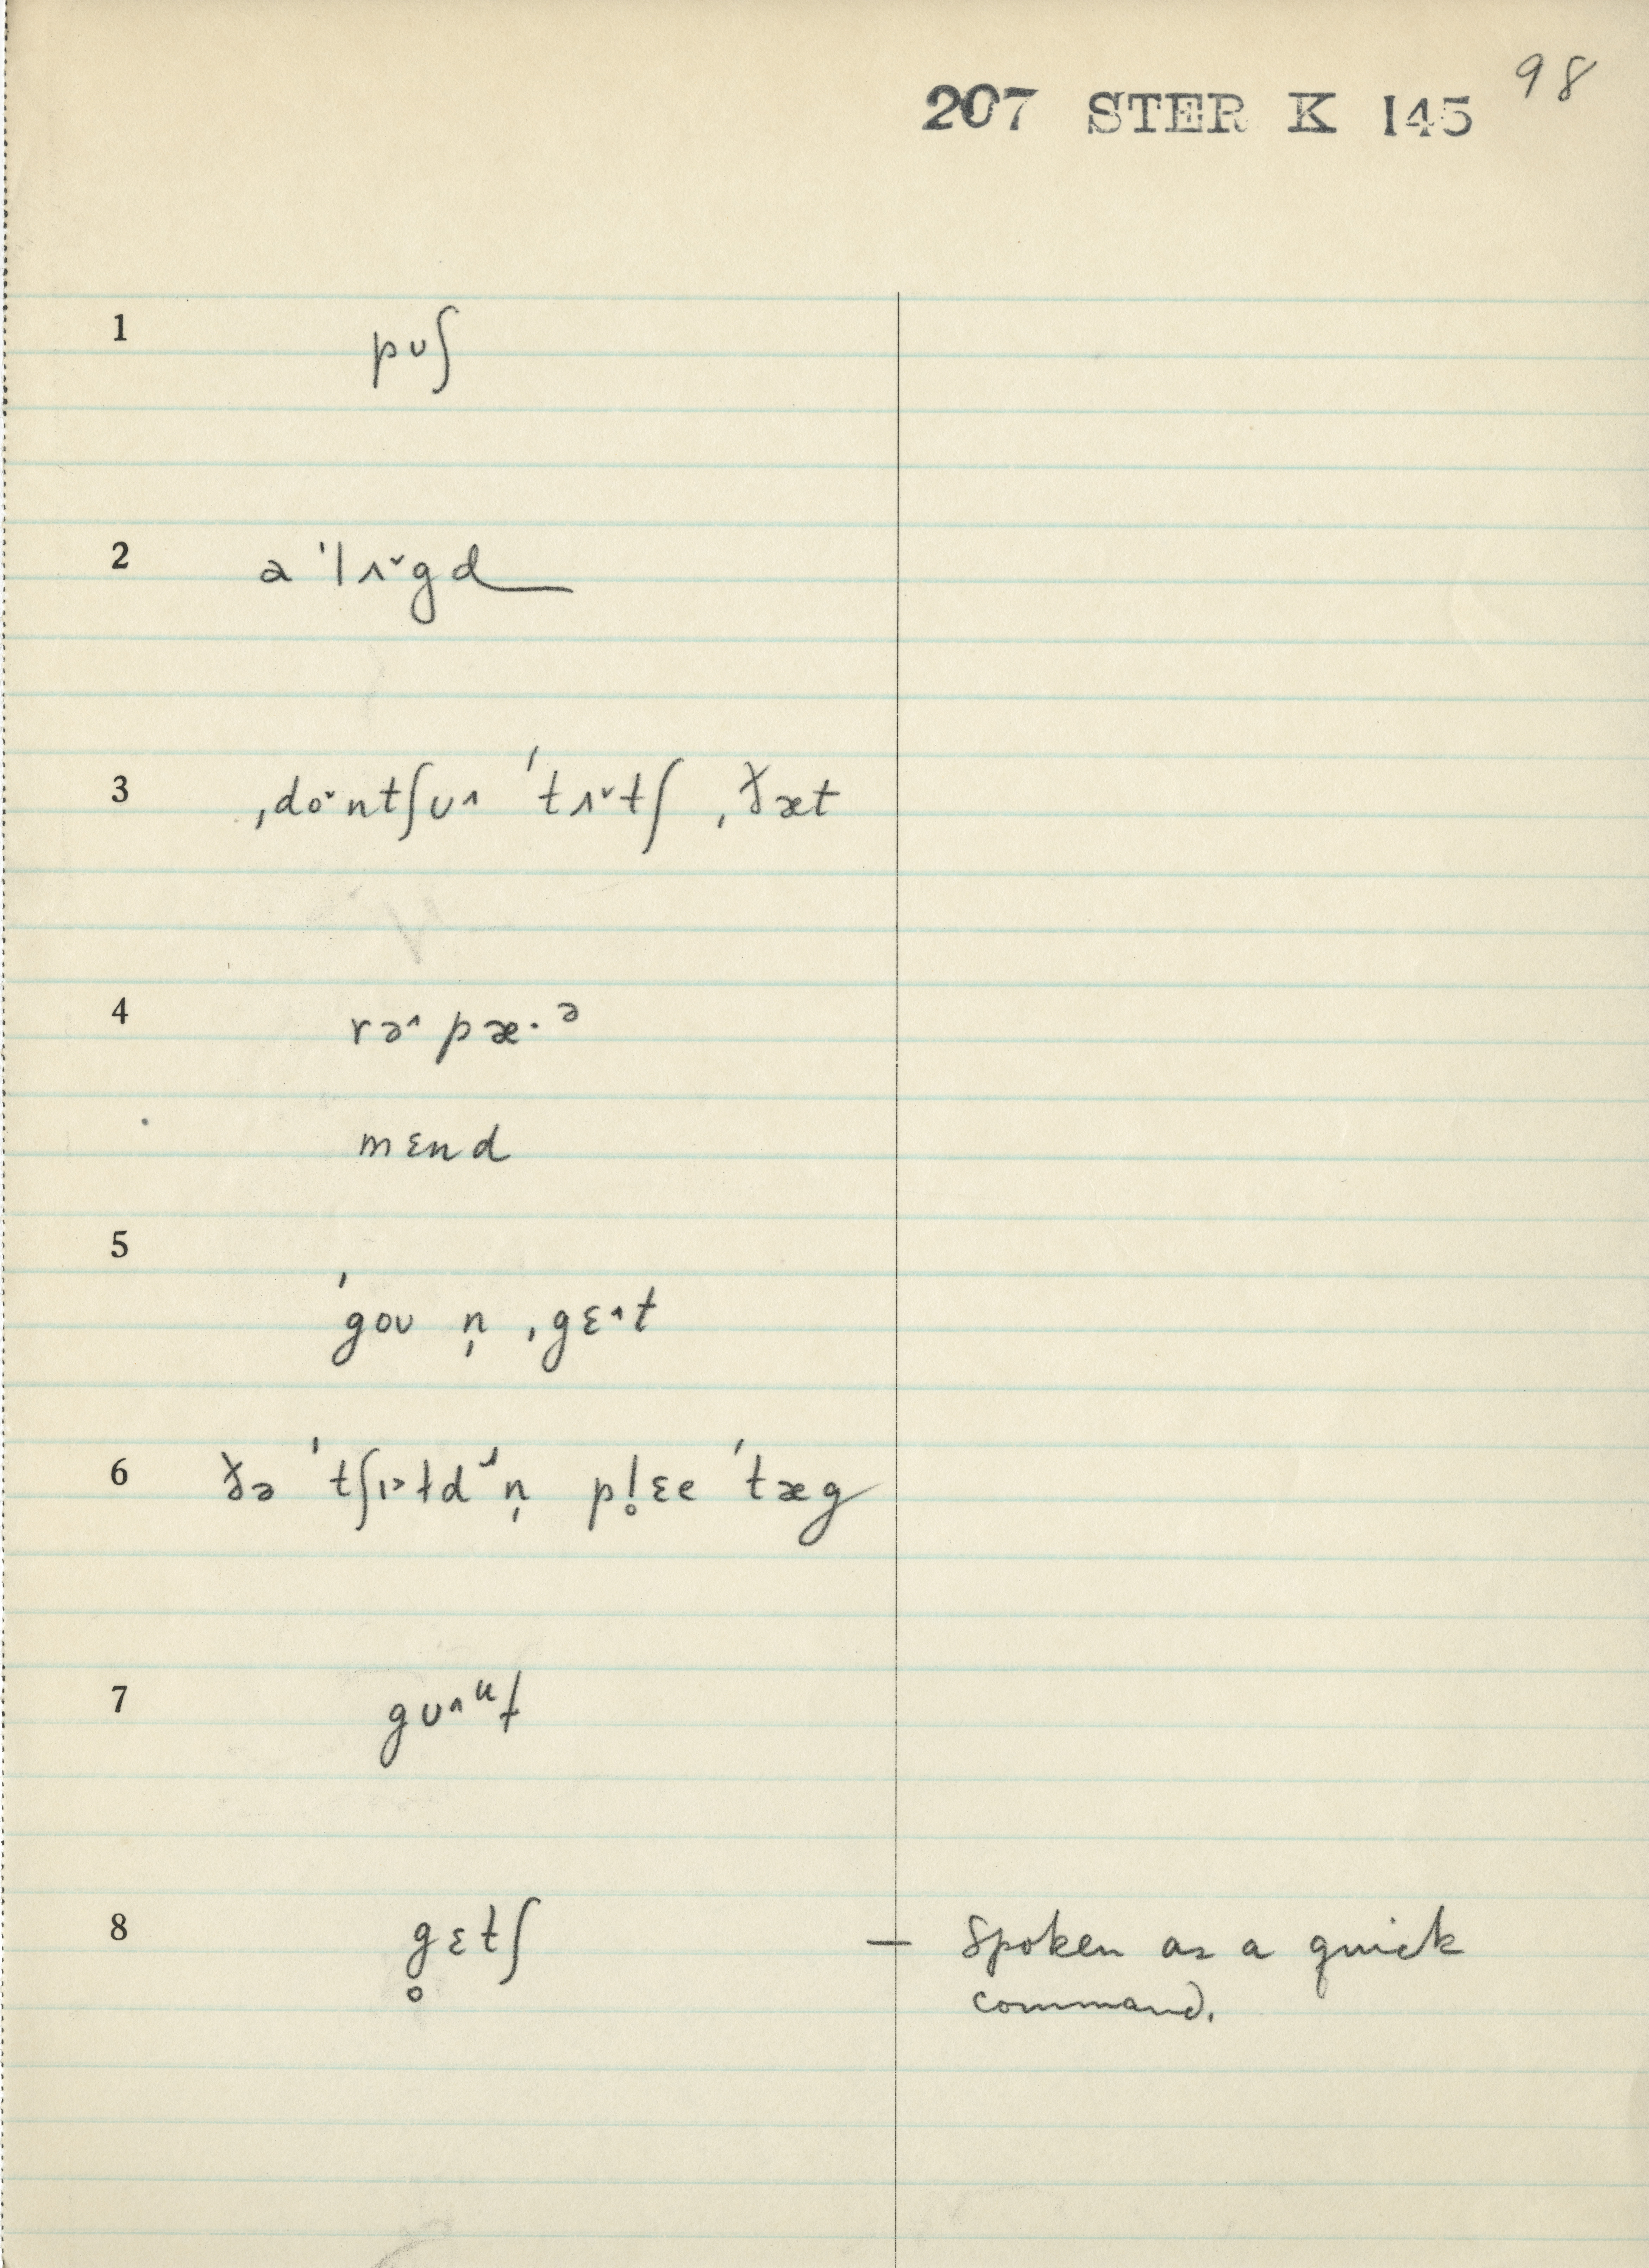 98
207 STER K 145
1 pʊʃ
2 a ˈlʌ˅gd
3 ˌdo˅ntʃʊ˄ ˈtʌ˅tʃ ˌðæt
4 rə˄ pæ·ᵊ
mɛnd
5 ˈgoʊ n̩ ˌgɛ˄t
6 ðə ˈtʃɪ˃ɫdᶦn̩ pl̥ɛe ˈtæg
7 gʊ˄ᵘɫ
8 g̥ɛtʃ — Spoken as a quick
command.